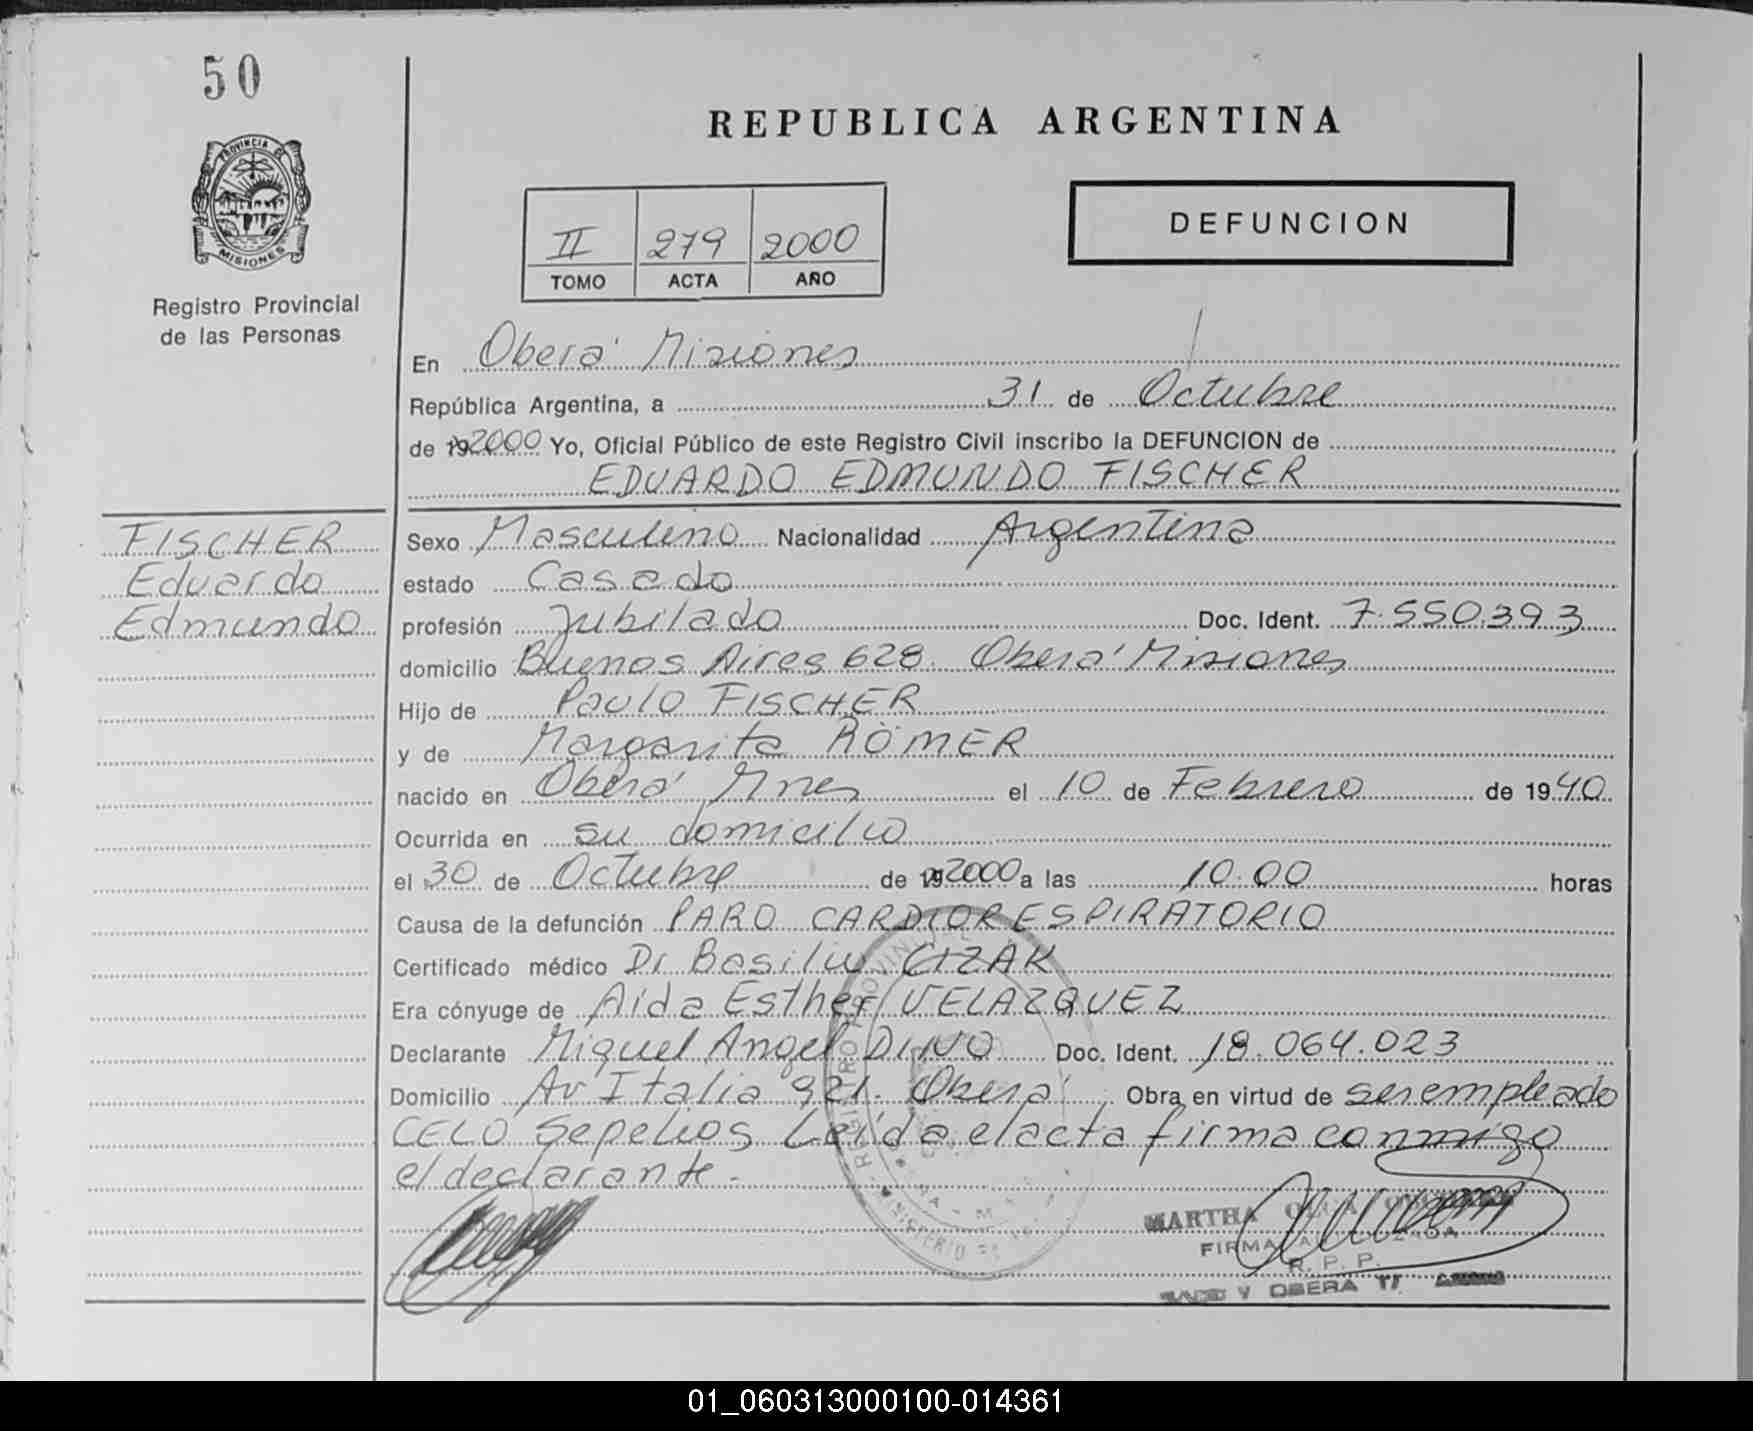 50
REPUBLICA ARGENTINA
PROVINCIA DE
MISIONES
II 279 2000
TOMO ACTA AÑO
DEFUNCION
Registro Provincial
de las Personas
En Oberá Misiones
República Argentina, a 31 de Octubre
de 192000 Yo, Oficial Público de este Registro Civil inscribo la DEFUNCION de
EDUARDO EDMUNDO FISCHER
FISCHER
Eduardo
Edmundo
Sexo Masculino Nacionalidad Argentina
estado Casado
profesión Jubilado Doc. Ident. 7.550.393
domicilio Buenos Aires 628. Oberá Misiones
Hijo de Paulo FISCHER
y de Margarita RÖMER
nacido en Oberá Mnes el 10 de Febrero de 1940
Ocurrida en su domicilio
el 30 de Octubre de 192000 a las 10.00 horas
Causa de la defunción PARO CARDIORESPIRATORIO
Certificado médico Dr Basilio CIZAK
Era cónyuge de Aída Esther VELAZQUEZ
Declarante Miguel Angel DINO Doc. Ident. 18.064.023
Domicilio Av Italia 921. Oberá Obra en virtud de ser empleado
CELO Sepelios Leída el acta firma conmigo
el declarante.-
MARTHA
FIRMA
R. P. P.
OBERA
01_060313000100-014361